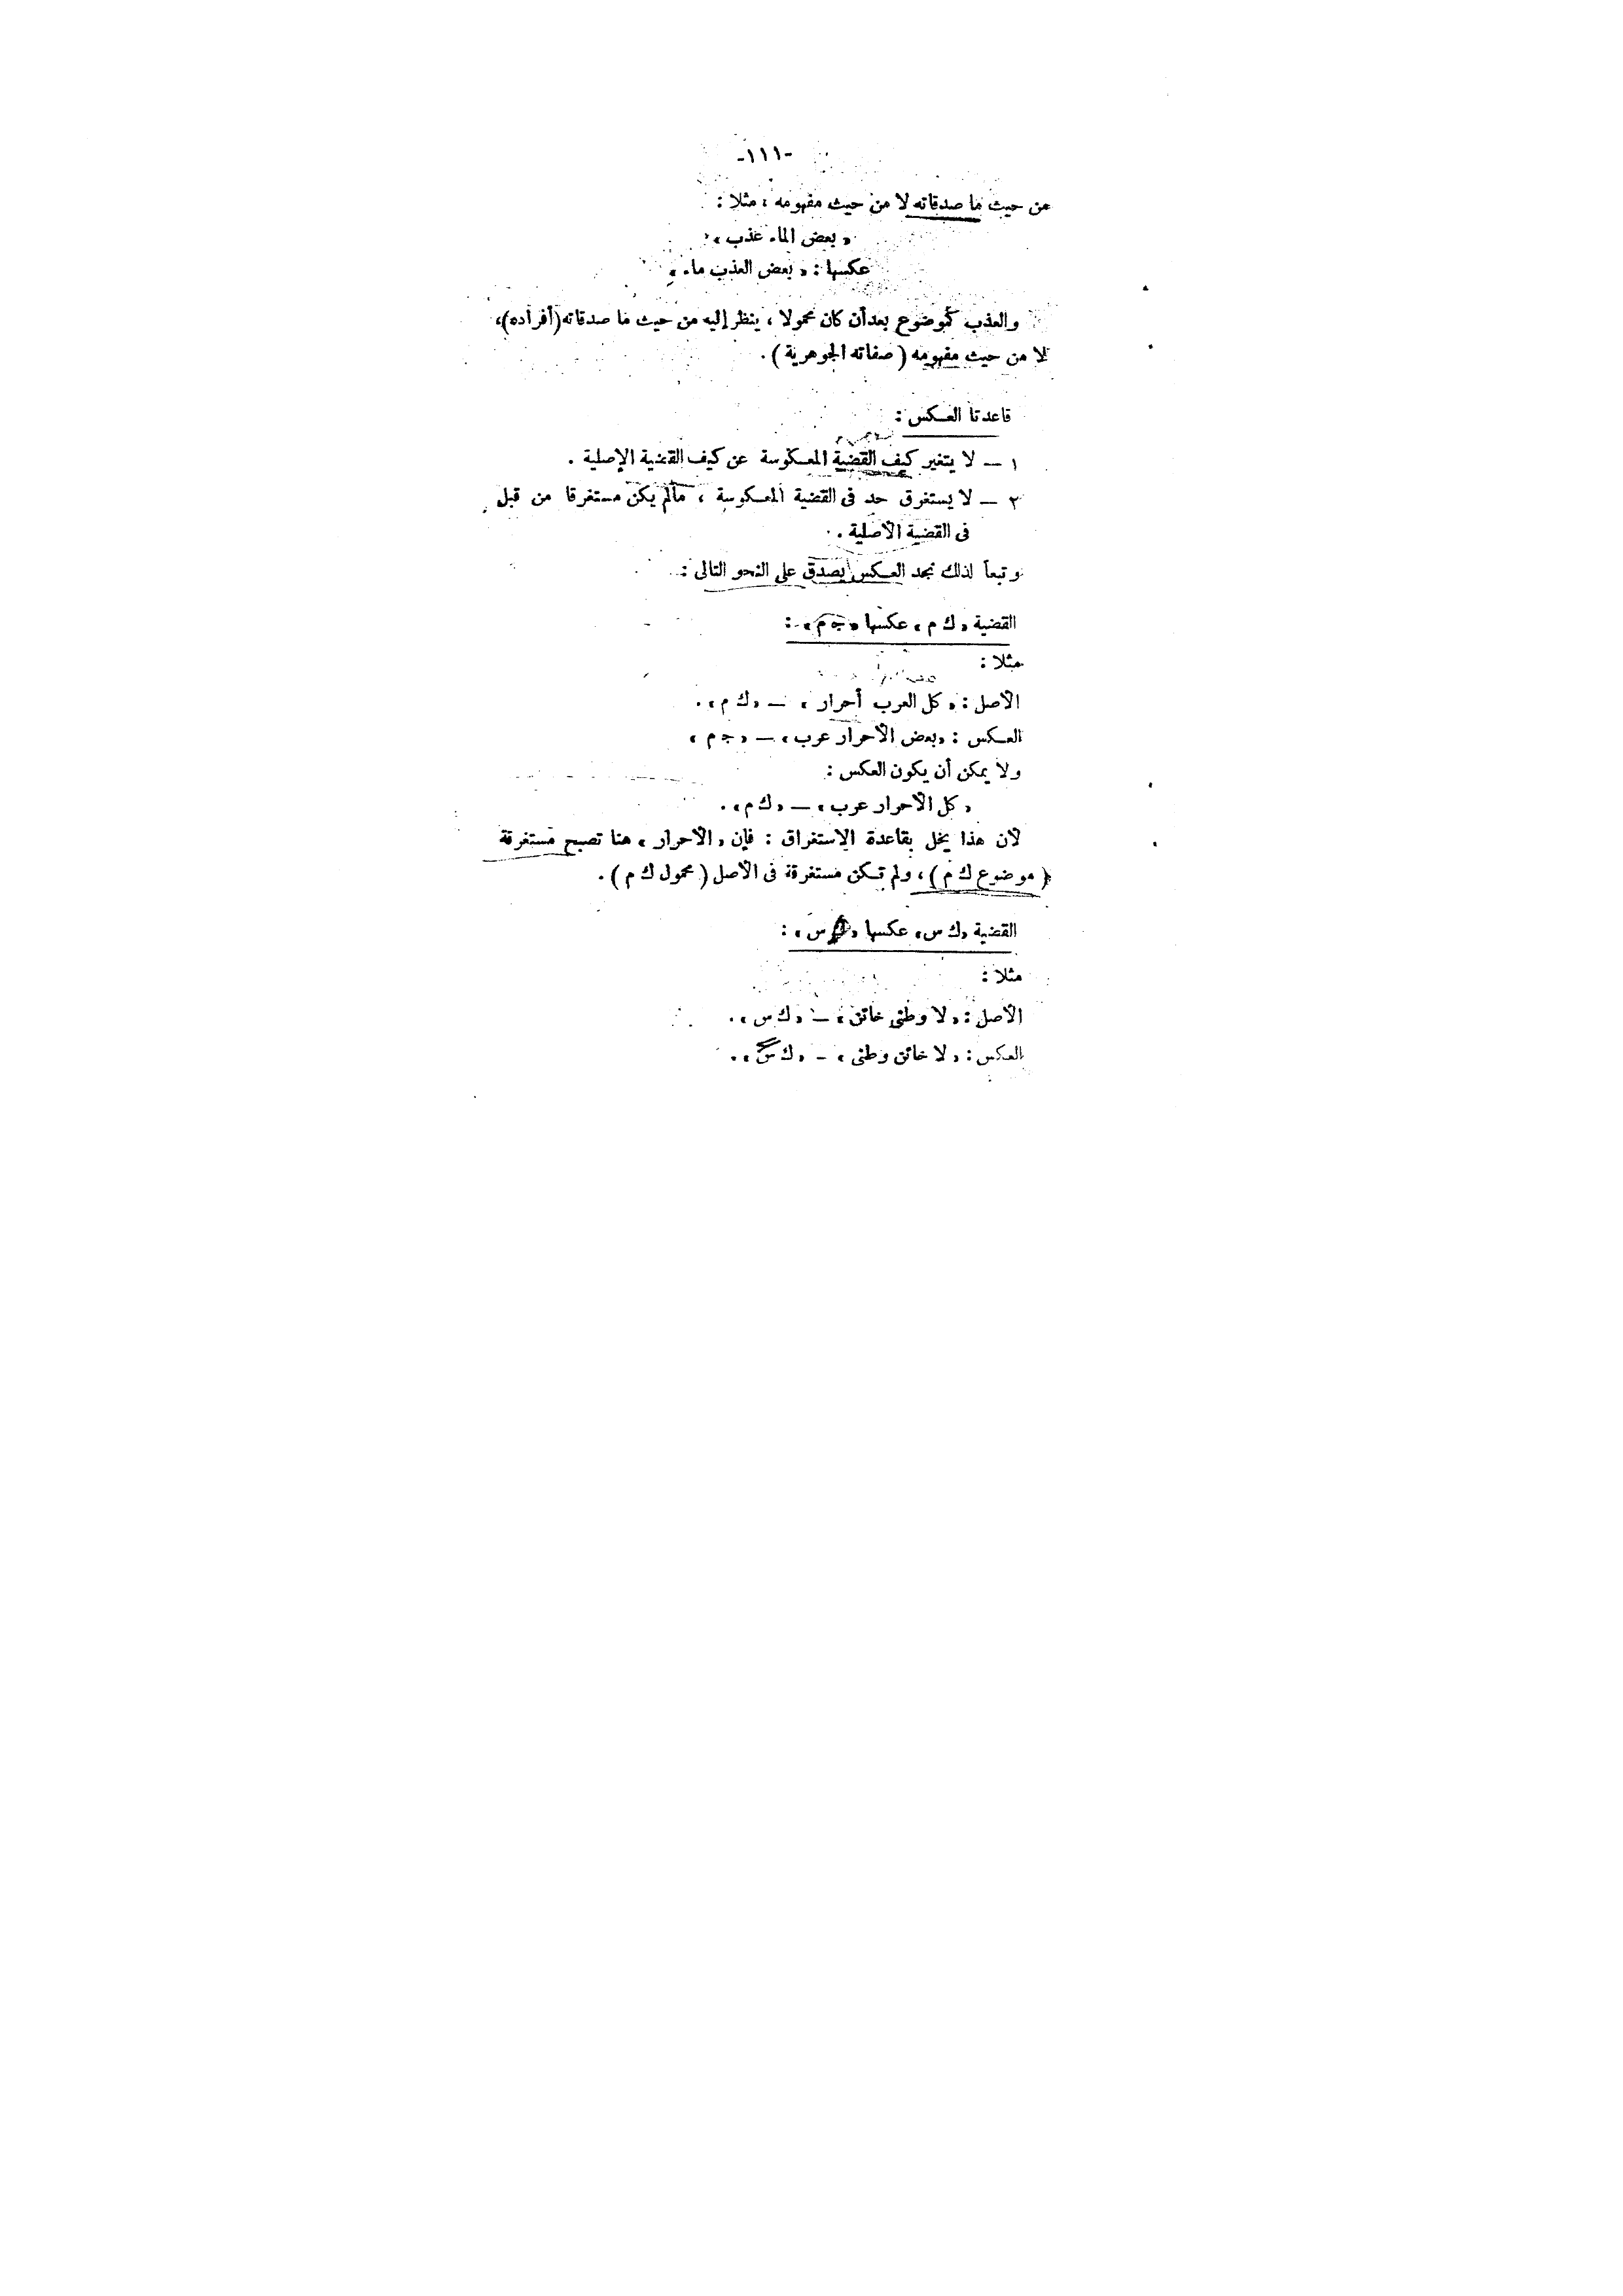 -١١١-
من حيث ما صدقاته لا من حيث مفهومه ، مثلا :
« بعض الماء عذب »
عكسها : « بعض العذب ماء »
والعذب كموضوع بعد أن كان محمولا ، ينظر إليه من حيث ما صدقاته (أفراده)،
لا من حيث مفهومه ( صفاته الجوهرية ) .
قاعدتا العكس :
١ — لا يتغير كيف القضية المعكوسة عن كيف القضية الإصلية .
٢ — لا يستغرق حد فى القضية المعكوسة ، مالم يكن مستغرقا من قبل
فى القضية الأصلية .
وتبعاً لذلك نجد العكس يصدق على النحو التالى :
القضية « ك م » عكسها « ج م » :
مثلا :
الأصل : « كل العرب أحرار » — « ك م » .
العكس : « بعض الأحرار عرب » — « ج م »
ولا يمكن أن يكون العكس :
« كل الأحرار عرب » — « ك م » .
لأن هذا يخل بقاعدة الإستغراق : فإن « الأحرار » هنا تصبح مستغرقة
( موضوع ك م ) ، ولم تكن مستغرقة فى الأصل ( محمول ك م ) .
القضية « ك س » عكسها « س » :
مثلا :
الأصل : « لا وطنى خائن » — « ك س » .
العكس : « لا خائن وطنى » — « ك س » .